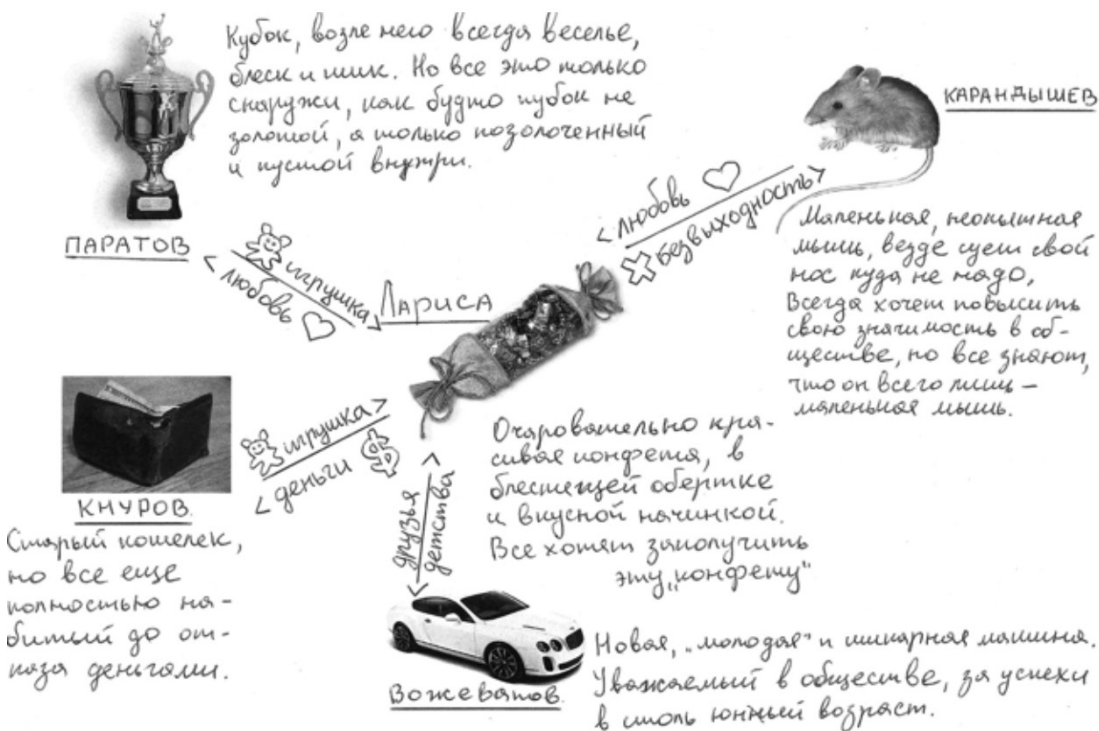 Кубок, возле него всегда веселье,
блеск и шик. Но все это только
снаружи, как будто кубок не
золотой, а только позолоченный
и пустой внутри.
ПАРАТОВ
КАРАНДЫШЕВ
Маленькая, неопытная
мышь, везде сует свой
нос куда не надо,
Всегда хочет повысить
свою значимость в об-
ществе, но все знают,
что он всего лишь –
маленькая мышь.
любовь
безвыходность
игрушка
любовь
Лариса
игрушка
деньги
КНУРОВ.
Старый кошелек,
но все еще
полностью на-
битый до от-
каза деньгами.
друзья
детства
Очаровательно кра-
сивая конфета, в
блестящей обертке
и вкусной начинкой.
Все хотят заполучить
эту „конфету"
Вожеватов.
Новая, „молодая" и шикарная машина.
Уважаемый в обществе, за успехи
в столь юный возраст.